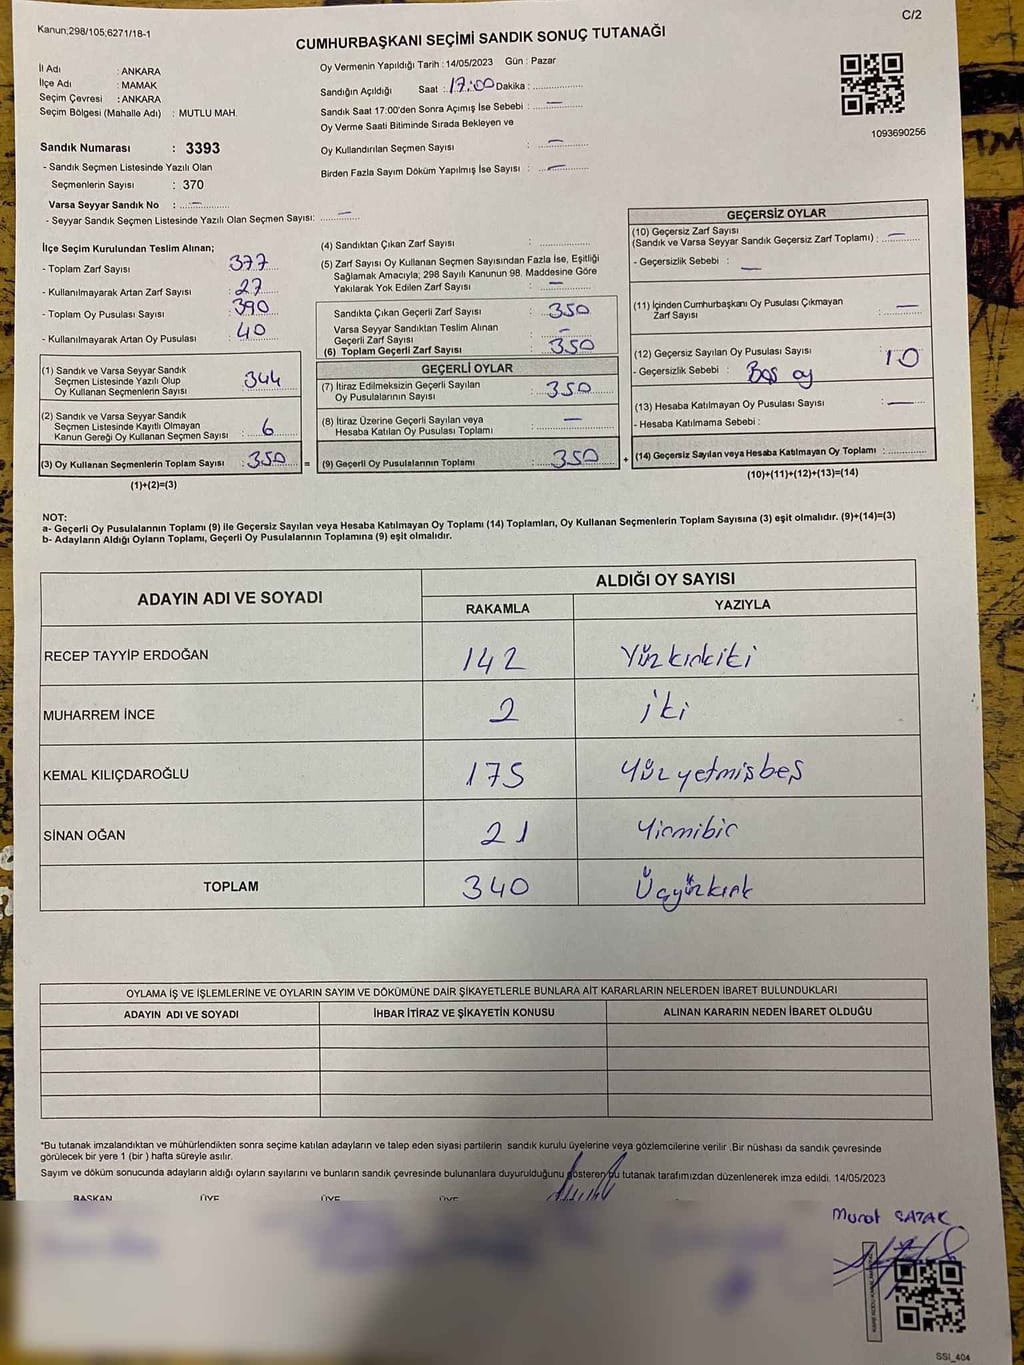 C/2
Kanun;298/105;6271/18-1
CUMHURBAŞKANI SEÇİMİ SANDIK SONUÇ TUTANAĞI
İl Adı : ANKARA
İlçe Adı : MAMAK
Seçim Çevresi : ANKARA
Seçim Bölgesi (Mahalle Adı) : MUTLU MAH.
Sandık Numarası : 3393
- Sandık Seçmen Listesinde Yazılı Olan
Seçmenlerin Sayısı : 370
Varsa Seyyar Sandık No : —
- Seyyar Sandık Seçmen Listesinde Yazılı Olan Seçmen Sayısı: —
Oy Vermenin Yapıldığı Tarih : 14/05/2023 Gün : Pazar
Sandığın Açıldığı Saat : 17:00 Dakika :
Sandık Saat 17:00'den Sonra Açımış İse Sebebi : —
Oy Verme Saati Bitiminde Sırada Bekleyen ve
Oy Kullandırılan Seçmen Sayısı : —
Birden Fazla Sayım Döküm Yapılmış İse Sayısı : —
1093690256
İlçe Seçim Kurulundan Teslim Alınan;
- Toplam Zarf Sayısı : 377
- Kullanılmayarak Artan Zarf Sayısı : 27
- Toplam Oy Pusulası Sayısı : 390
- Kullanılmayarak Artan Oy Pusulası : 40
(1) Sandık ve Varsa Seyyar Sandık
Seçmen Listesinde Yazılı Olup
Oy Kullanan Seçmenlerin Sayısı : 344
(2) Sandık ve Varsa Seyyar Sandık
Seçmen Listesinde Kayıtlı Olmayan
Kanun Gereği Oy Kullanan Seçmen Sayısı : 6
(3) Oy Kullanan Seçmenlerin Toplam Sayısı : 350
(1)+(2)=(3)
(4) Sandıktan Çıkan Zarf Sayısı :
(5) Zarf Sayısı Oy Kullanan Seçmen Sayısından Fazla İse, Eşitliği
Sağlamak Amacıyla; 298 Sayılı Kanunun 98. Maddesine Göre
Yakılarak Yok Edilen Zarf Sayısı : —
Sandıkta Çıkan Geçerli Zarf Sayısı : 350
Varsa Seyyar Sandıktan Teslim Alınan
Geçerli Zarf Sayısı : —
(6) Toplam Geçerli Zarf Sayısı : 350
GEÇERLİ OYLAR
(7) İtiraz Edilmeksizin Geçerli Sayılan
Oy Pusulalarının Sayısı : 350
(8) İtiraz Üzerine Geçerli Sayılan veya
Hesaba Katılan Oy Pusulası Toplamı : —
= (9) Geçerli Oy Pusulalarının Toplamı : 350 +
GEÇERSİZ OYLAR
(10) Geçersiz Zarf Sayısı
(Sandık ve Varsa Seyyar Sandık Geçersiz Zarf Toplamı) : —
- Geçersizlik Sebebi : —
(11) İçinden Cumhurbaşkanı Oy Pusulası Çıkmayan
Zarf Sayısı : —
(12) Geçersiz Sayılan Oy Pusulası Sayısı : 10
- Geçersizlik Sebebi : Boş oy
(13) Hesaba Katılmayan Oy Pusulası Sayısı : —
- Hesaba Katılmama Sebebi :
(14) Geçersiz Sayılan veya Hesaba Katılmayan Oy Toplamı :
(10)+(11)+(12)+(13)=(14)
NOT:
a- Geçerli Oy Pusulalarının Toplamı (9) ile Geçersiz Sayılan veya Hesaba Katılmayan Oy Toplamı (14) Toplamları, Oy Kullanan Seçmenlerin Toplam Sayısına (3) eşit olmalıdır. (9)+(14)=(3)
b- Adayların Aldığı Oyların Toplamı, Geçerli Oy Pusulalarının Toplamına (9) eşit olmalıdır.
ADAYIN ADI VE SOYADI ALDIĞI OY SAYISI
RAKAMLA YAZIYLA
RECEP TAYYİP ERDOĞAN 142 Yüzkırkiki
MUHARREM İNCE 2 iki
KEMAL KILIÇDAROĞLU 175 Yüzyetmişbeş
SİNAN OĞAN 21 Yirmibir
TOPLAM 340 Üçyüzkırk
OYLAMA İŞ VE İŞLEMLERİNE VE OYLARIN SAYIM VE DÖKÜMÜNE DAİR ŞİKAYETLERLE BUNLARA AİT KARARLARIN NELERDEN İBARET BULUNDUKLARI
ADAYIN ADI VE SOYADI İHBAR İTİRAZ VE ŞİKAYETİN KONUSU ALINAN KARARIN NEDEN İBARET OLDUĞU
*Bu tutanak imzalandıktan ve mühürlendikten sonra seçime katılan adayların ve talep eden siyasi partilerin sandık kurulu üyelerine veya gözlemcilerine verilir .Bir nüshası da sandık çevresinde
görülecek bir yere 1 (bir ) hafta süreyle asılır.
Sayım ve döküm sonucunda adayların aldığı oyların sayılarını ve bunların sandık çevresinde bulunanlara duyurulduğunu gösteren bu tutanak tarafımızdan düzenlenerek imza edildi. 14/05/2023
BAŞKAN ÜYE ÜYE ÜYE
Murat
SSI_404